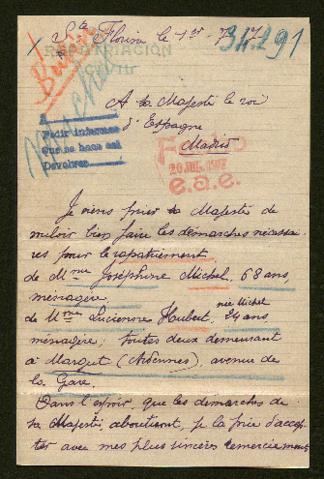 Ste Florine le 1er - 7 - 17
34.291
REPATRIACION
A Sa Majesté le roi
d'Espagne
Madrid
Pedir informes
Que se hace así
Devolver
e.a.e.
Je viens prier Sa Majesté de
vouloir bien faire les démarches nécessai
res pour le rapatriement
de Mme Joséphine Michel, 68 ans,
ménagère,
née Michel
de Mme Lucienne Hubert, 24 ans
ménagère; toutes deux demeurant
à Margut (Ardennes), avenue de
la Gare.
Dans l'espoir, que les démarches de
Sa Majesté, aboutiront, je la prie d'accep
ter avec mes plus sincères remerciements